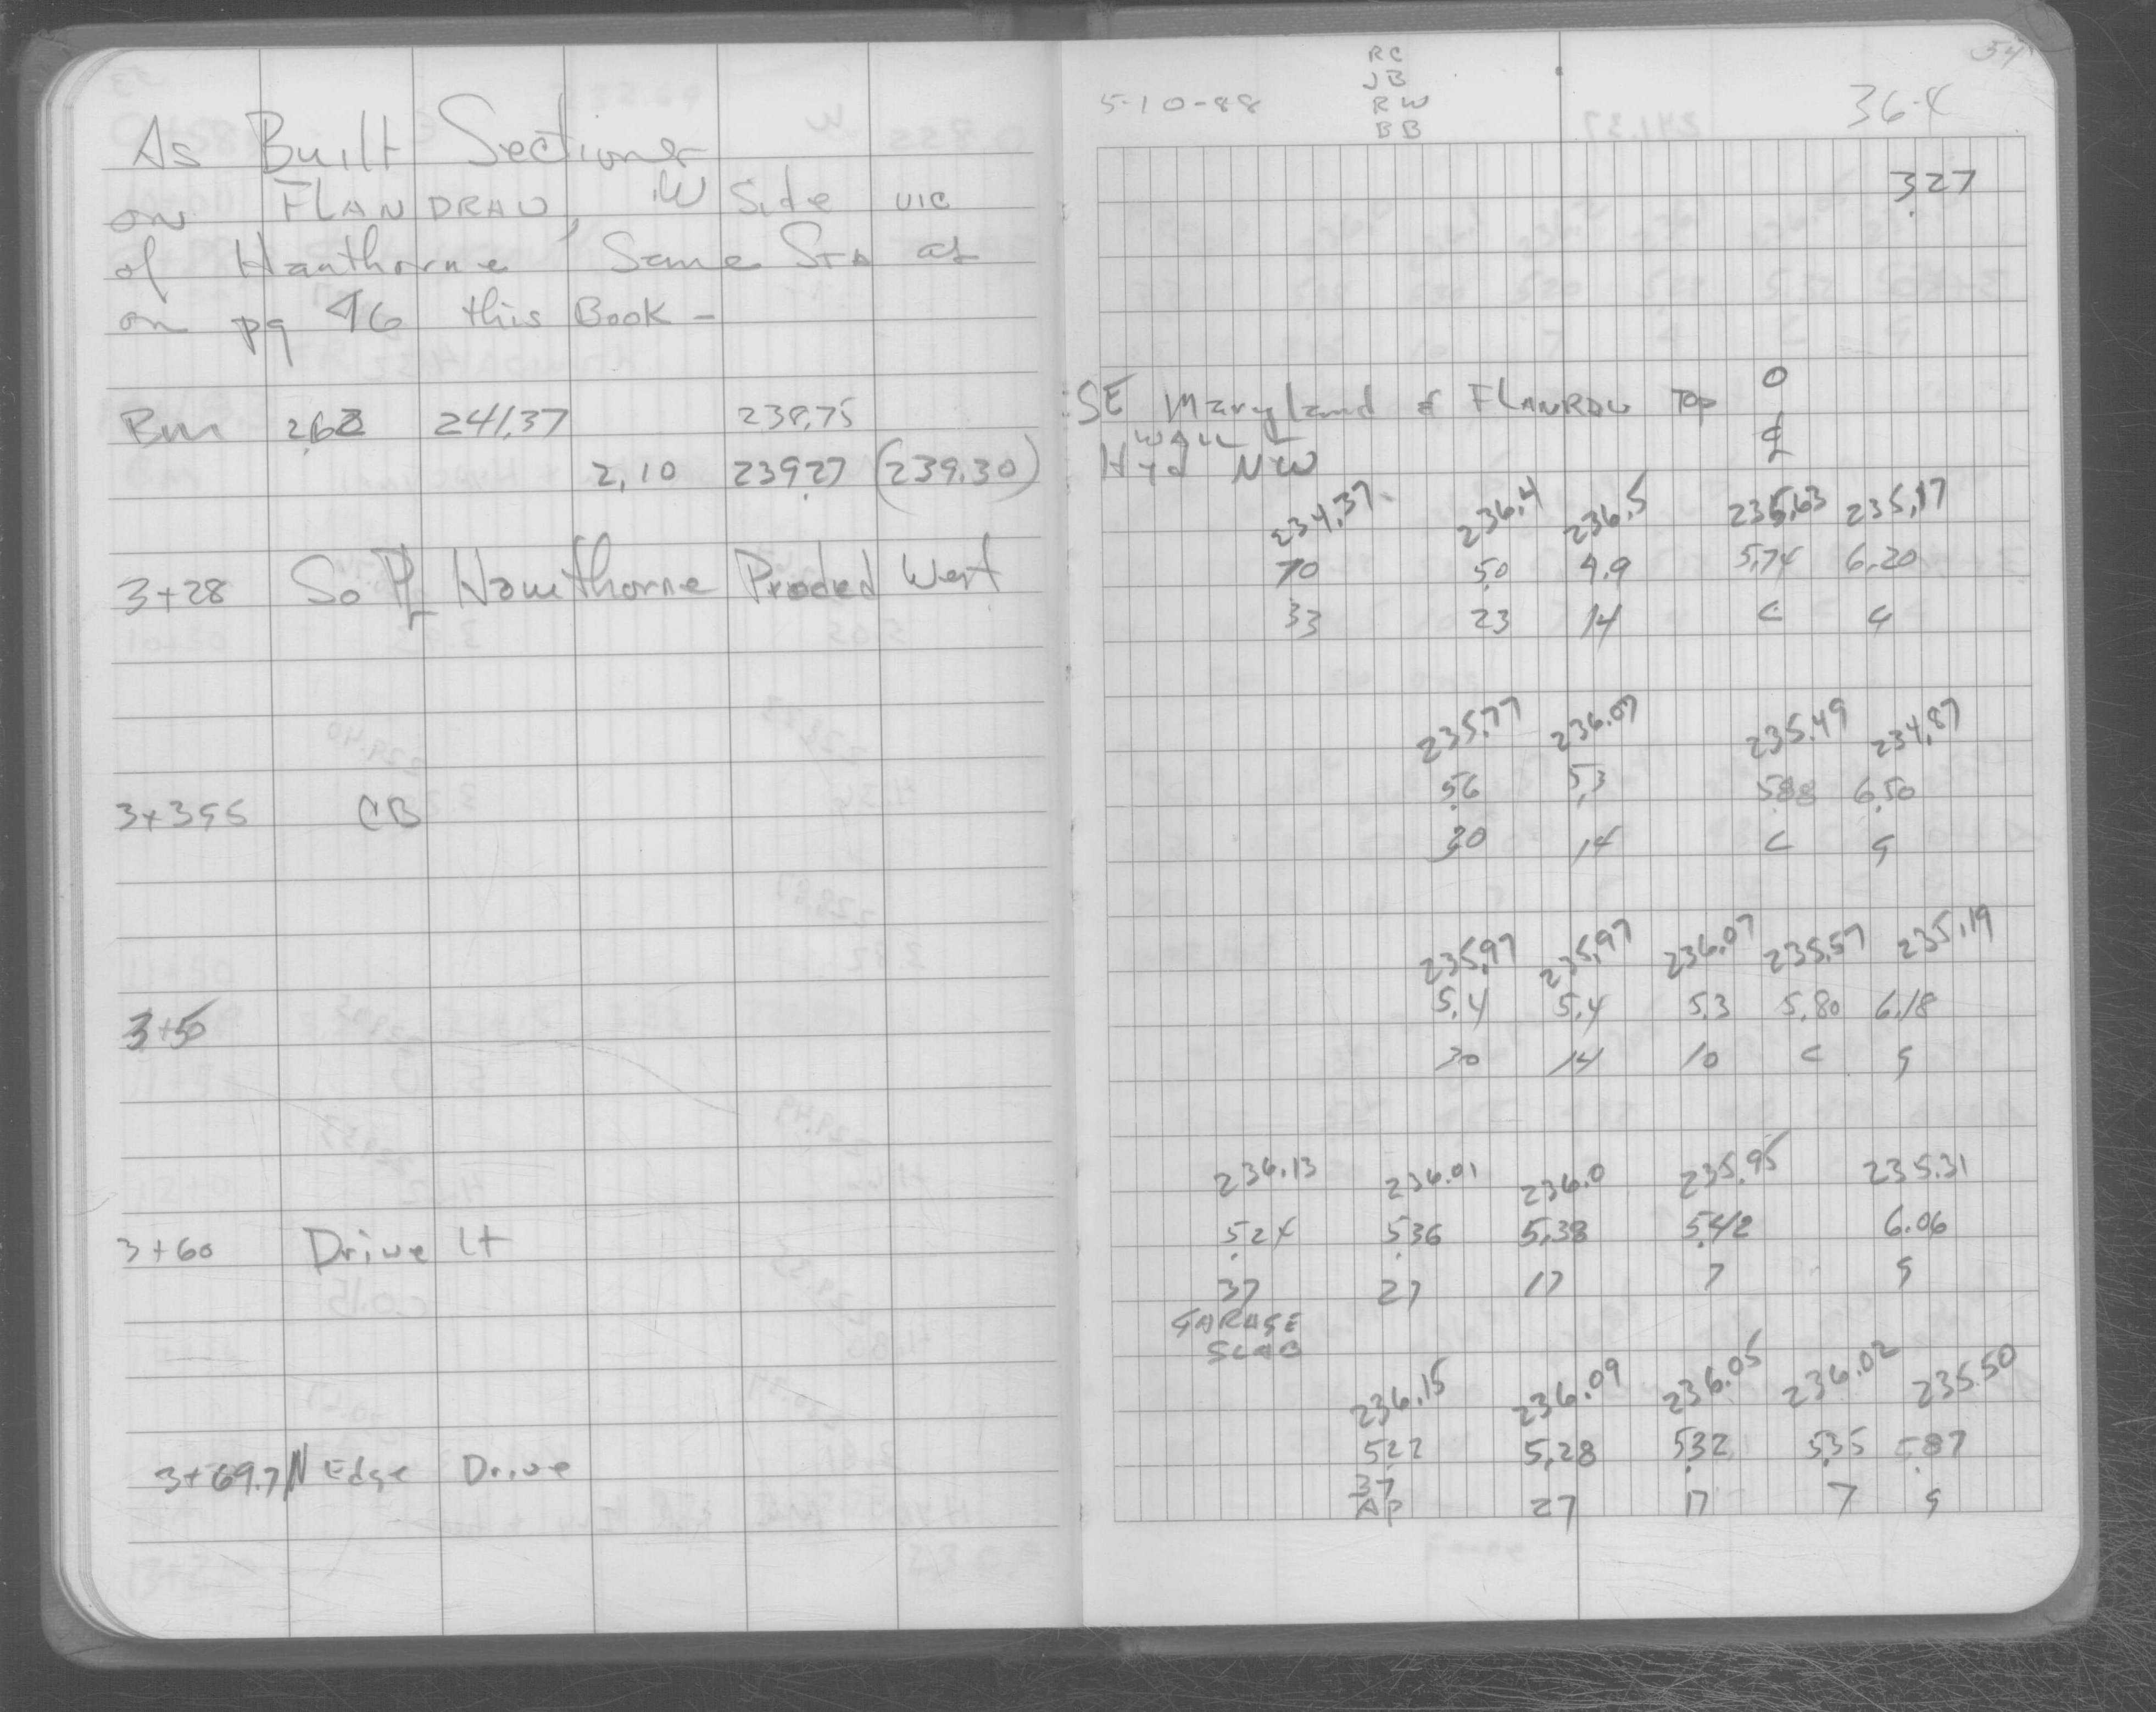 As Built Sections
on FLANDRAU, W Side VIC
of Hawthorne Same STA as
on pg 46 this Book -
Bm 2.62 241.37 238.75
2.10 239.27 (239.30)
3+28 So PL Hawthorne Proded West
3+39.5 CB
3+50
3+60 Drive Lt
3+69.7 N Edge Drive
54
RC
JB
5-10-88 RW 36-4
BB
3.27
O
SE Maryland & FLANRDU Top
WALL ℄
Hyd NW
234.37 236.4 236.5 235.63 235.17
70 5.0 4.9 5.74 6.20
33 23 14 C G
235.77 236.07 235.49 234.87
5.6 5.3 5.88 6.50
30 14 C G
235.97 235.97 236.07 235.57 235.19
5.4 5.4 5.3 5.80 6.18
30 14 10 C G
236.13 236.01 236.0 235.95 235.31
5.24 5.36 5.38 5.42 6.06
37 27 17 7 G
GARAGE
SLAB
236.15 236.09 236.05 236.02 235.50
5.22 5.28 5.32 5.35 5.87
37
AP 27 17 7 G